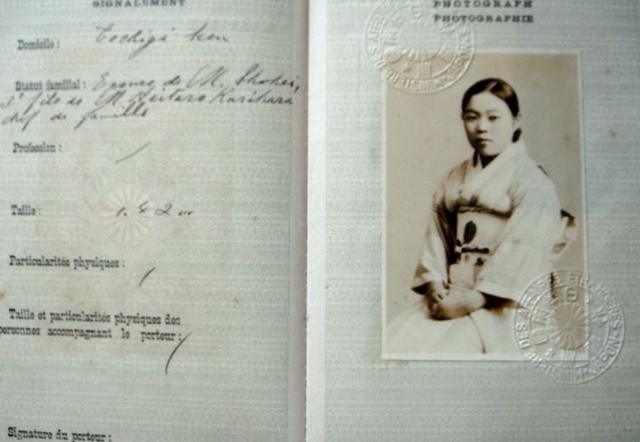 SIGNALEMENT
Domicile : Tochigi ken
Statut familial : Epouse de M. Shohei,
fils de M. Keitaro Kurihara
chef de famille
Profession : /
Taille :
Particularités physiques : /
Taille et particularités physiques des
personnes accompagnant le porteur : /
Signature du porteur :
PHOTOGRAPH
PHOTOGRAPHIE